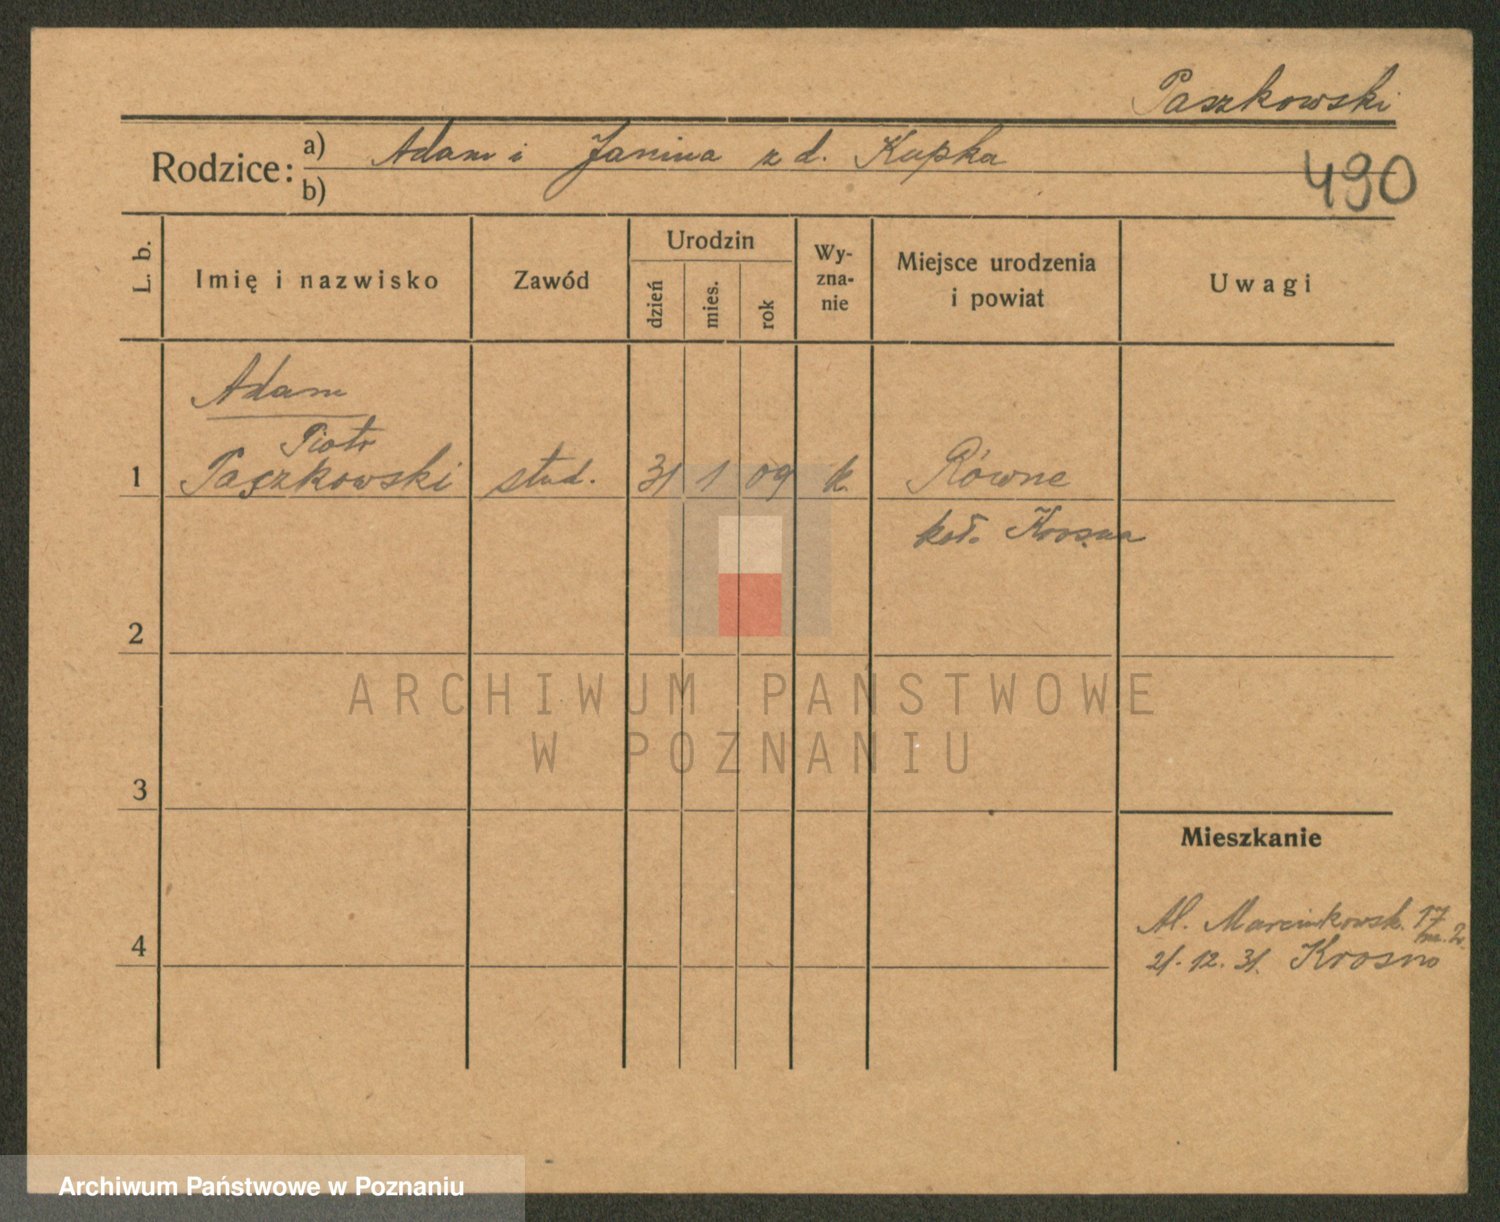 Paszkowski
Rodzice: a) Adam i Janina z d. Kupka
b)
490
L. b.
Imię i nazwisko
Zawód
Urodzin
dzień
mies.
rok
Wy-
zna-
nie
Miejsce urodzenia
i powiat
Uwagi
Adam
Piotr
1 Paszkowski stud. 31 1 09 k. Równe
koł. Krosna
2
3
4
Mieszkanie
Al. Marcinkowsk. 17
m. 2.
21. 12. 31. Krosno
ARCHIWUM PAŃSTWOWE
W POZNANIU
Archiwum Państwowe w Poznaniu